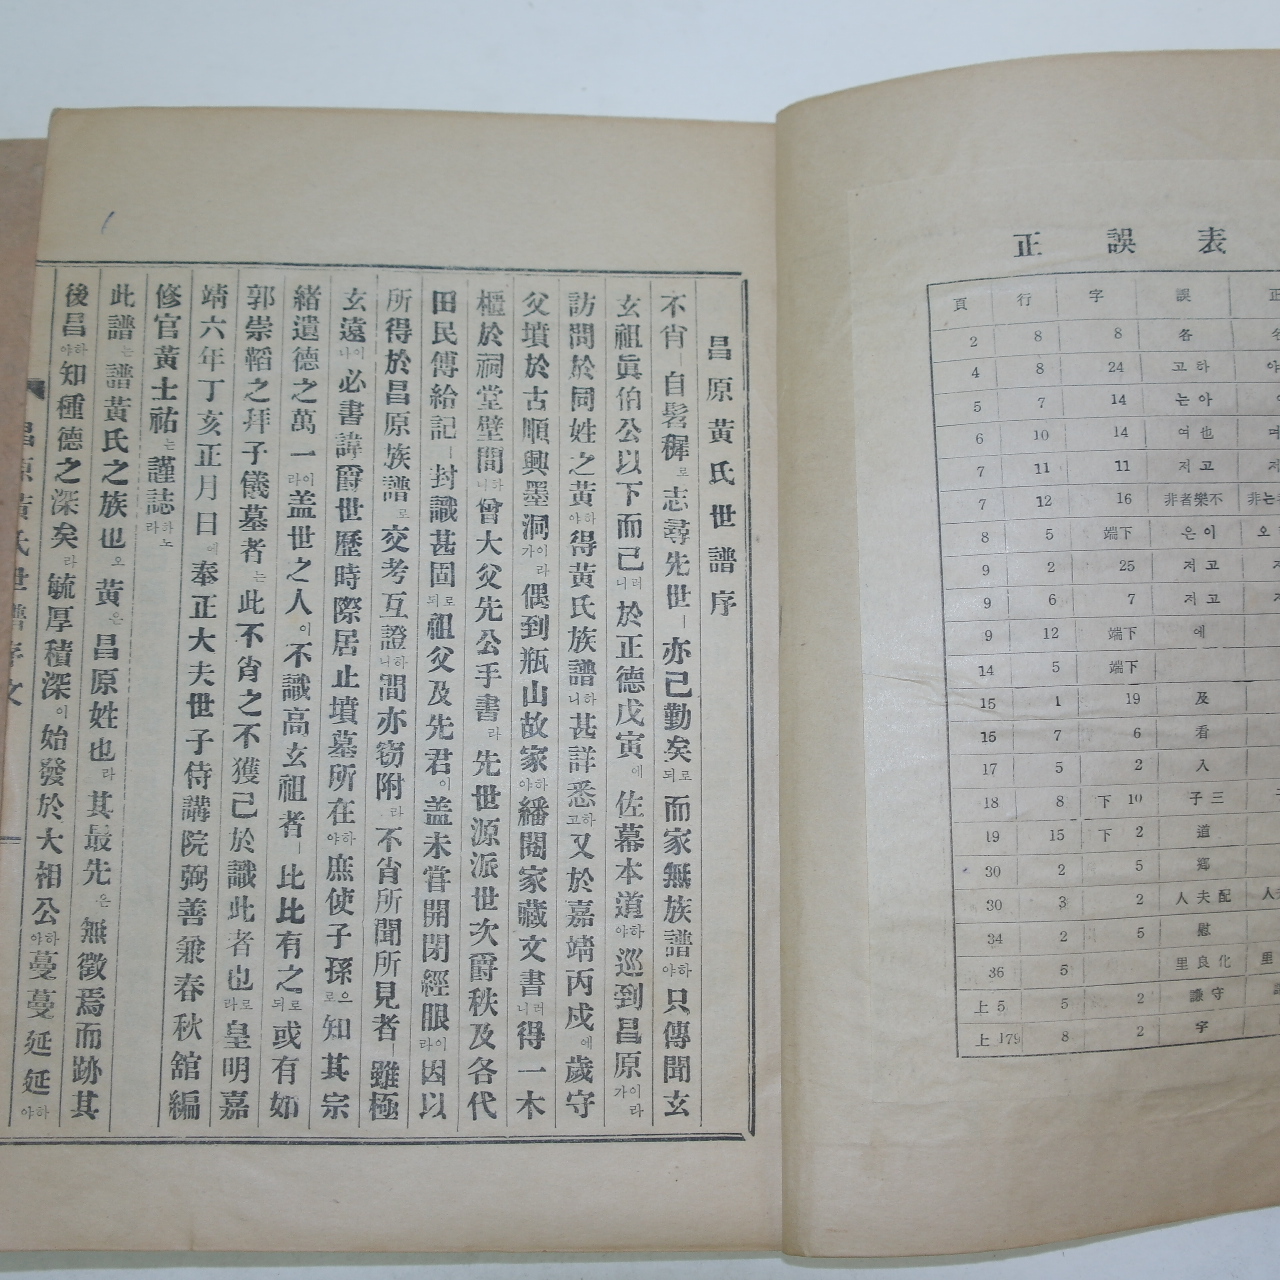 正誤表
頁 行 字 誤 正
2 8 8 各
4 8 24 고하
5 7 14 는아
6 10 14 여也
7 11 11 저고
7 12 16 非者樂不
8 5 端下 은이
9 2 25 저고
9 6 7 저고
9 12 端下 에
14 5 端下
15 1 19 及
15 7 6 看
17 5 2 入
18 8 下10 子三
19 15 下2 道
30 2 5 鄉
30 3 2 人夫配
34 2 5 慰
36 5 里良化
上5 5 2 謙守
上179 8 2 字
昌原黃氏世譜序
不肖ㅣ自髫穉로志尋先世ㅣ亦已勤矣로되而家無族譜하야只傳聞玄
玄祖眞伯公以下而已러니於正德戊寅에佐幕本道하야巡到昌原이라가
訪問於同姓之黃하야得黃氏族譜하니甚詳悉하고又於嘉靖丙戌에歲守
父墳於古順興墨洞이라가偶到甁山故家하야繙閱家藏文書러니得一木
櫃於祠堂壁間하니曾大父先公手書라先世源派世次爵秩及各代
田民傳給記ㅣ封識甚固로되祖父及先君이盖未甞開閉經眼이라因以
所得於昌原族譜로交考互證하니間亦窃附라不肖所聞所見者ㅣ雖極
玄遠이나必書諱爵世歷時際居止墳墓所在하야庶使子孫으로知其宗
緖遺德之萬一이라盖世之人이不識高玄祖者ㅣ比比有之로되或有如
郭崇韜之拜子儀墓者는此不肖之不獲已於識此者也로라皇明嘉
靖六年丁亥正月日에奉正大夫世子侍講院弼善兼春秋舘編
修官黃士祐는謹誌하노라
此譜는譜黃氏之族也오黃은昌原姓也라其最先은無徵焉而跡其
後昌하야知種德之深矣라毓厚積深이始發於大相公하야蔓蔓延延하야
昌原黃氏世譜序文